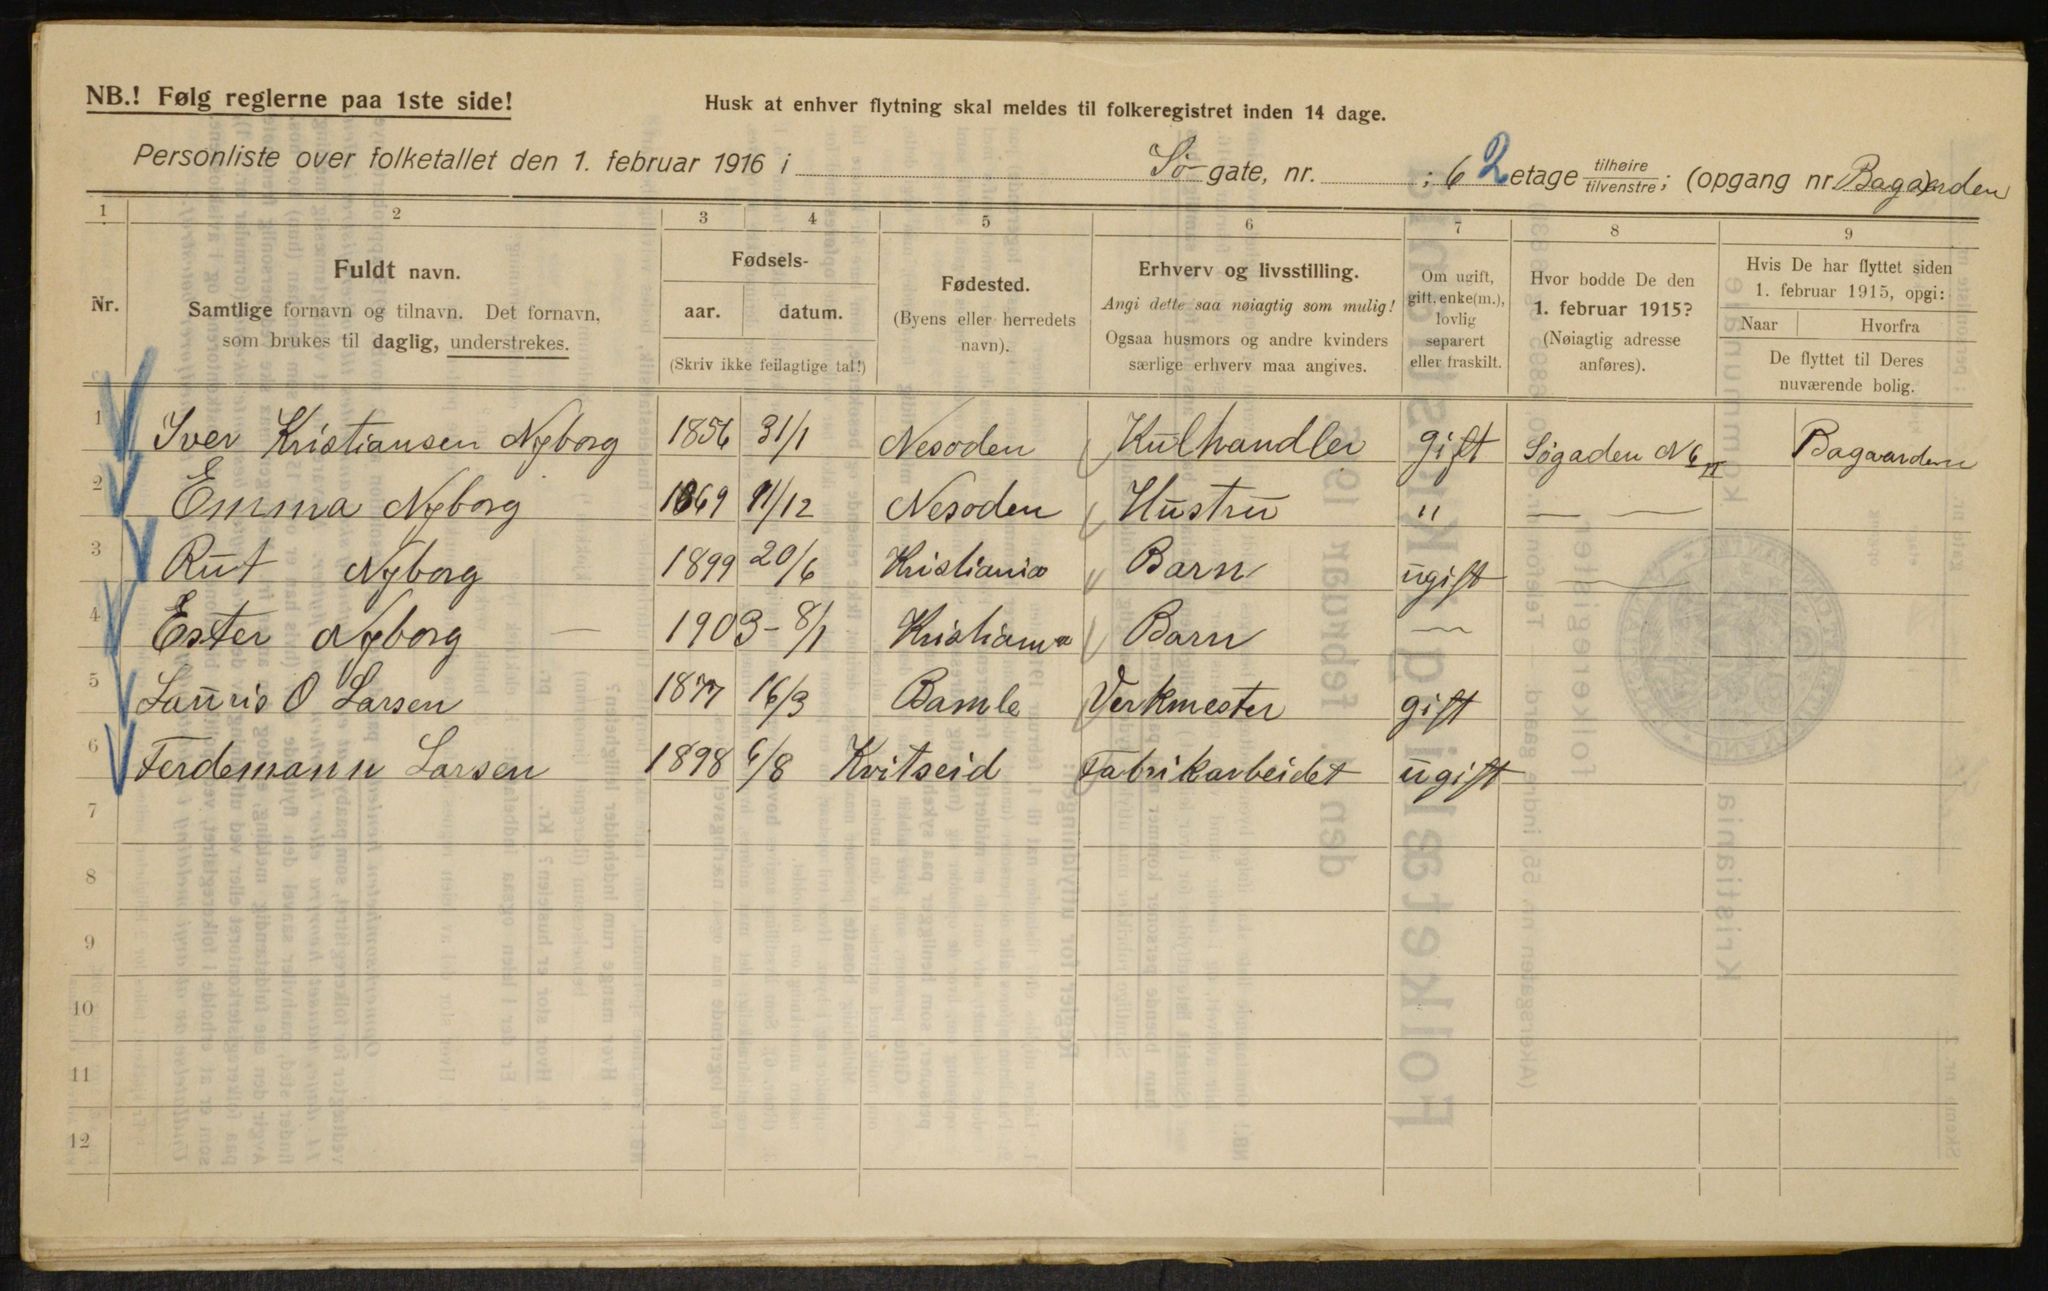 NB.! Følg reglerne paa 1ste side!
Husk at enhver flytning skal meldes til folkeregistret inden 14 dage.
Personliste over folketallet den 1. februar 1916 i Sø- gate, nr. ; 6 2 etage tilhøire tilvenstre; (opgang nr. Bagaarden
1 2 3 4 5 6 7 8 9
Nr.
Fuldt navn.
Samtlige fornavn og tilnavn. Det fornavn,
som brukes til daglig, understrekes.
Fødsels-
aar. datum.
(Skriv ikke feilagtige tal!)
Fødested.
(Byens eller herredets
navn).
Erhverv og livsstilling.
Angi dette saa nøiagtig som mulig!
Ogsaa husmors og andre kvinders
særlige erhverv maa angives.
Om ugift,
gift, enke(m.),
lovlig
separert
eller fraskilt.
Hvor bodde De den
1. februar 1915?
(Nøiagtig adresse
anføres).
Hvis De har flyttet siden
1. februar 1915, opgi:
Naar Hvorfra
De flyttet til Deres
nuværende bolig.
1 Iver Kristiansen Nyborg 1856 31/1 Nesoden Kulhandler gift Søgaden N 6 II Bagaarden
2 Emma Nyborg 1869 11/12 Nesoden Hustru " — —
3 Rut Nyborg 1899 20/6 Kristiania Barn ugift —
4 Ester Nyborg — 1903 - 8/1 Kristiania Barn —
5 Lauris O Larsen 1877 16/3 Bamle Verkmester gift
6 Ferdemann Larsen 1898 6/8 Kvitseid Fabrikarbeidet ugift
7
8
9
10
11
12